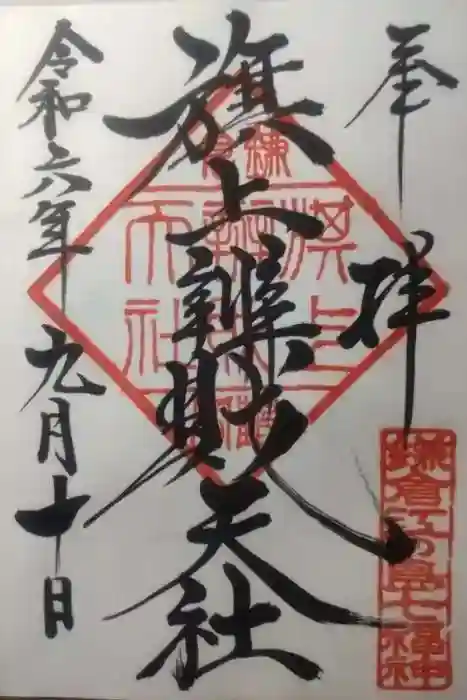 奉拝
旗上辨財天社
令和六年九月十日
鎌倉
旗上
辨財
天社
鎌倉江の島七福神